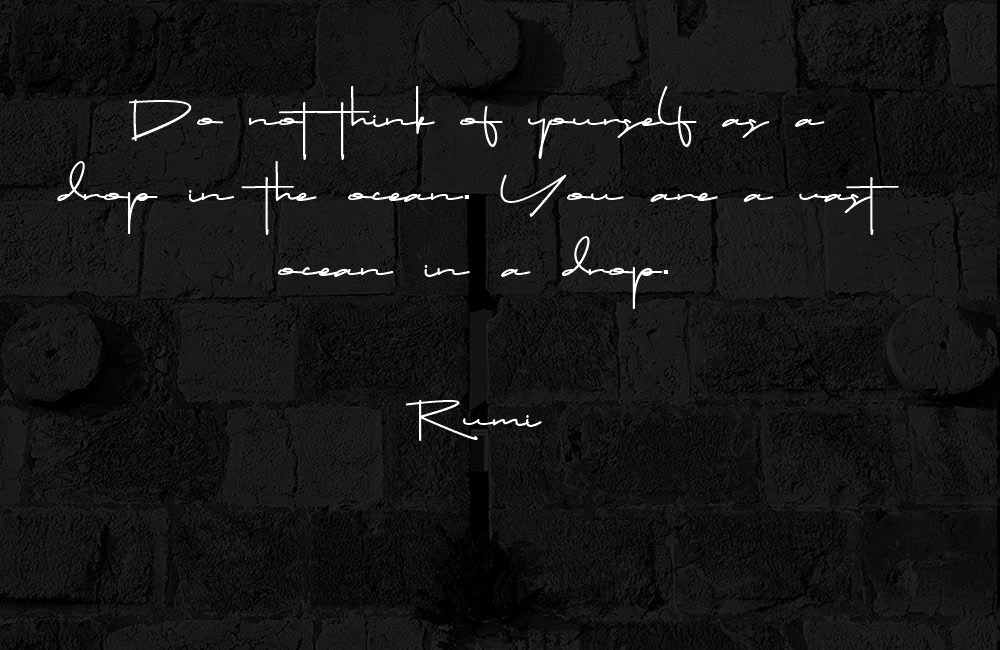 Do not think of yourself as a
drop in the ocean. You are a vast
ocean in a drop.
Rumi